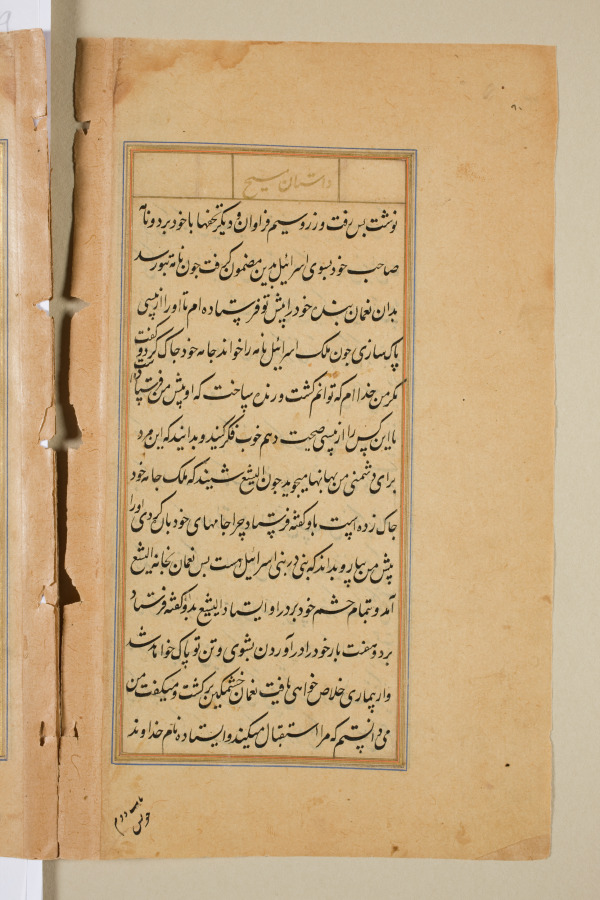 داستان مسیح
نوشت بس رفت و زر و سیم فراوان و دیکر تحفها با خود برد و نامه
صاحب خود بسوی اسرائیل بدین مضمون کرفت جون نامه بتو رسد
بدان نعمان بنده خود را پیش تو فرستاده ام تا او را از پیسی
پاک سازی جون ملک اسرائیل نامه را خواند جامه خود جاک کرد و کفت
مکر من خدا ام که توانم کشت و زنده ساخت که او پیش من فرستاده است
تا این کس را از پیسی صحت دهم خوب فکر کنید و بدانید که این مرد
برای دشمنی من بهانها میجوید جون الیشع شنید که ملک جامه خود
جاک زده است باو کفته فرستاد چرا جامهای خود باک کردی او را
پیش من بیار و بداند که نبی در بنی اسرائیل هست بس نعمان بخانه الیشع
آمد و تمام حشم خود بر در او ایستاد الیشع بدو کفته فرستاد
برو و هفت بار خود را در آوردن بشوی و تن تو پاک خواهد شد
و از بیماری خلاص خواهی یافت نعمان خشمکین برکشت و میکفت من
می دانستم که مرا استقبال میکند و ایستاده نام خداوند